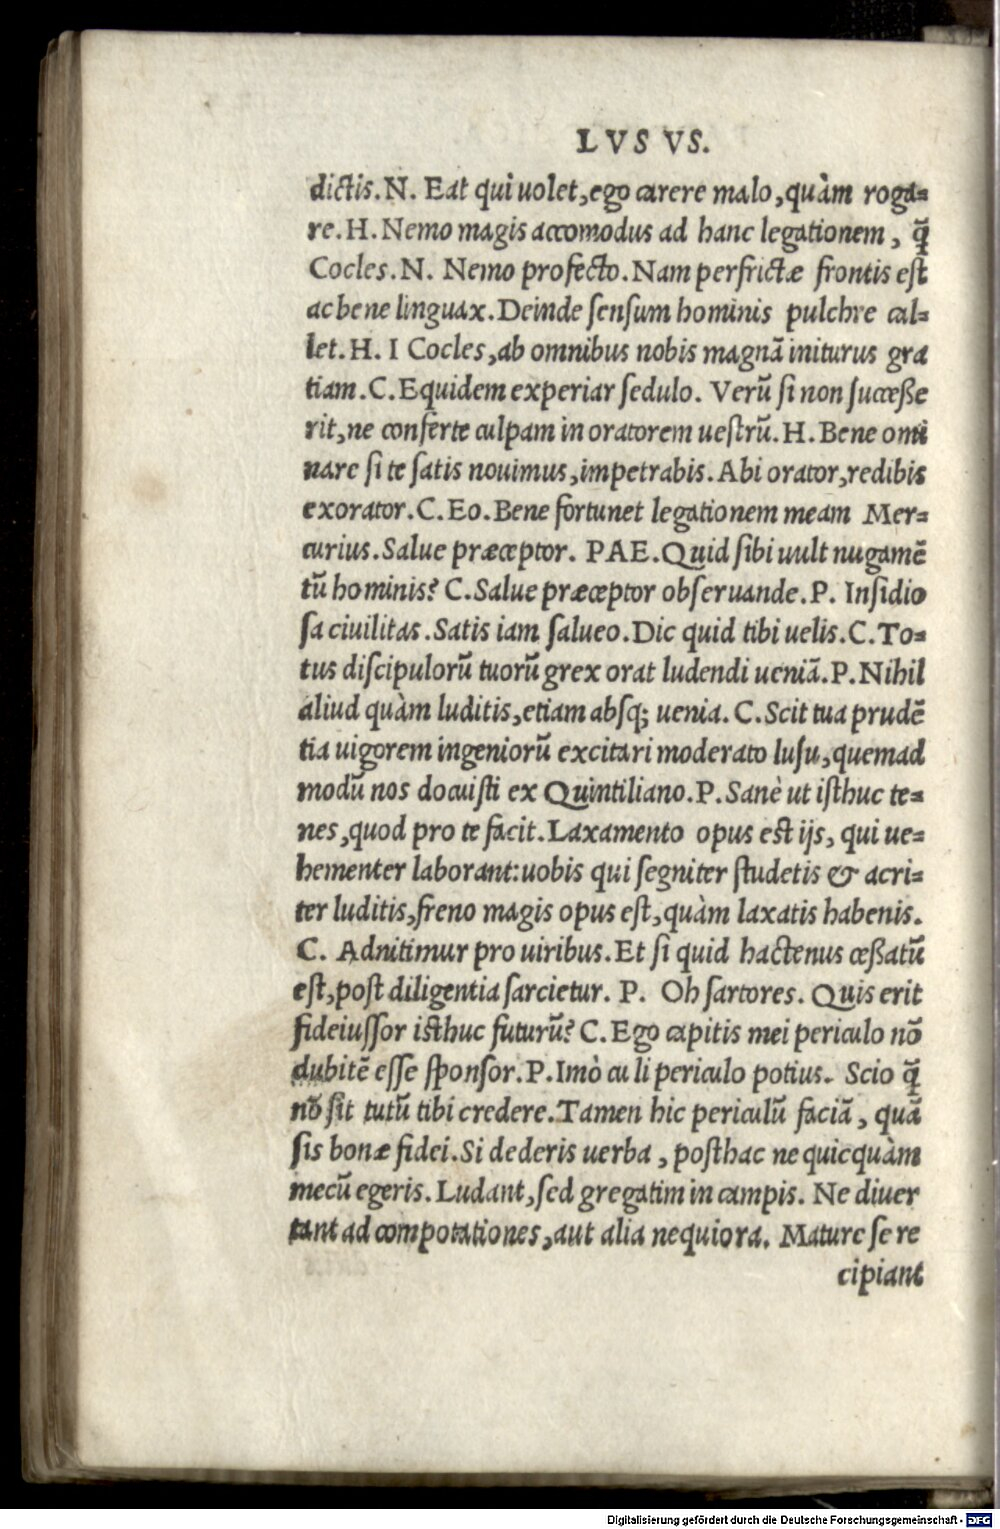 LVSVS.
dictis.N. Eat qui uolet, ego carere malo, quàm roga=
re.H.Nemo magis accomodus ad hanc legationem, q̃
Cocles.N. Nemo profecto.Nam perfrictæ frontis est
ac bene linguax.Deinde sensum hominis pulchre cal=
let.H. I Cocles, ab omnibus nobis magnã initurus gra
tiam.C.Equidem experiar sedulo. Verũ si non successe
rit, ne conferte culpam in oratorem uestrũ.H.Bene omi
nare si te satis nouimus, impetrabis.Abi orator, redibis
exorator.C.Eo.Bene fortunet legationem meam Mer=
curius.Salue præceptor. PAE.Quid sibi uult nugamẽ
tũ hominis? C.Salue præceptor obseruande.P. Insidio
sa ciuilitas.Satis iam salueo.Dic quid tibi uelis.C.To=
tus discipulorũ tuorũ grex orat ludendi ueniã.P.Nihil
aliud quàm luditis, etiam absq; uenia. C.Scit tua prudẽ
tia uigorem ingeniorũ excitari moderato lusu, quemad
modũ nos docuisti ex Quintiliano.P.Sanè ut isthuc te=
nes, quod pro te facit.Laxamento opus est ijs, qui ue=
hementer laborant: uobis qui segniter studetis & acri=
ter luditis, freno magis opus est, quàm laxatis habenis.
C. Adnitimur pro uiribus.Et si quid hactenus cessatũ
est, post diligentia sarcietur. P. Oh sartores. Quis erit
fideiussor isthuc futurũ? C.Ego capitis mei periculo nõ
dubitẽ esse sponsor.P.Imò culi periculo potius. Scio q̃
nõ sit tutũ tibi credere.Tamen hic periculũ faciã, quã
sis bonæ fidei.Si dederis uerba, posthac ne quicquàm
mecũ egeris.Ludant, sed gregatim in campis. Ne diuer
tant ad compotationes, aut alia nequiora. Mature se re
cipiant
Digitalisierung gefördert durch die Deutsche Forschungsgemeinschaft - DFG